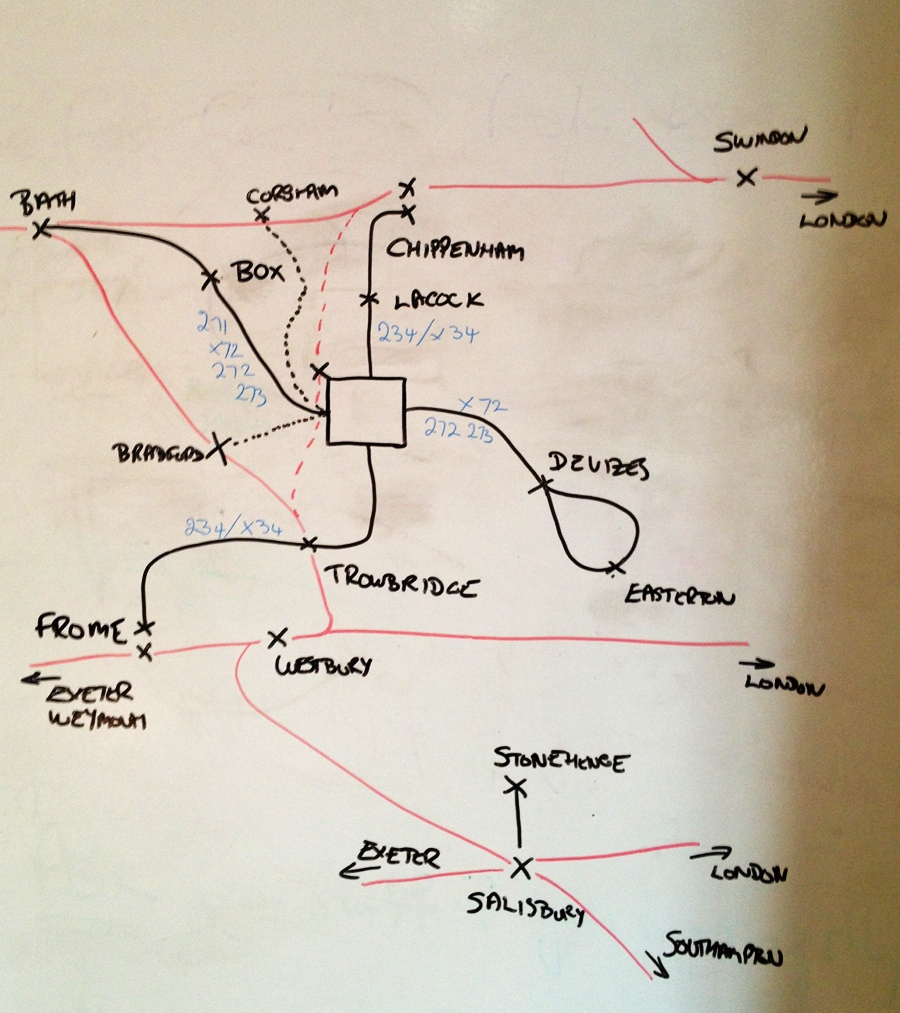 SWINDON
BATH
CORSHAM
LONDON
CHIPPENHAM
BOX
LACOCK
271
X72
272
273
234/X34
X72
272 273
BRADFORD
DEVIZES
234/X34
TROWBRIDGE
EASTERTON
FROME
WESTBURY
LONDON
EXETER
WEYMOUTH
STONEHENGE
EXETER
LONDON
SALISBURY
SOUTHAMPTON